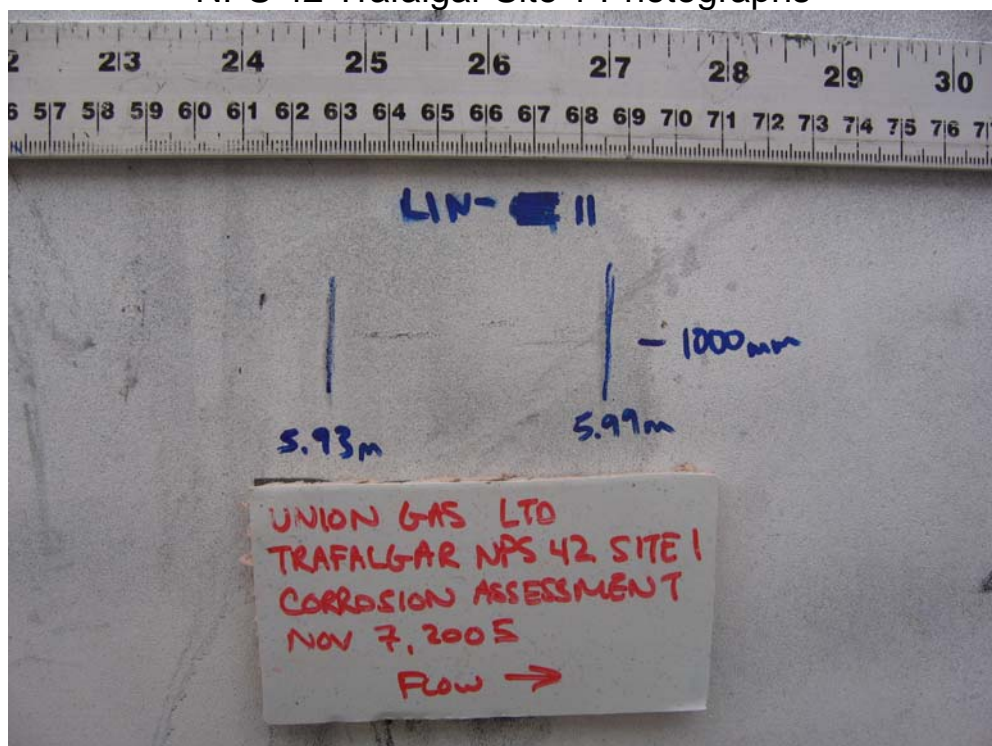 NPS 42 Trafalgar Site 1 Photographs
2 2|3 2|4 2|5 2|6 2|7 2|8 2|9 3|0
6 5|7 5|8 5|9 6|0 6|1 6|2 6|3 6|4 6|5 6|6 6|7 6|8 6|9 7|0 7|1 7|2 7|3 7|4 7|5 7|6 7
LIN- 11
- 1000mm
5.93m 5.99m
UNION GAS LTD
TRAFALGAR NPS 42 SITE 1
CORROSION ASSESSMENT
NOV 7, 2005
FLOW →